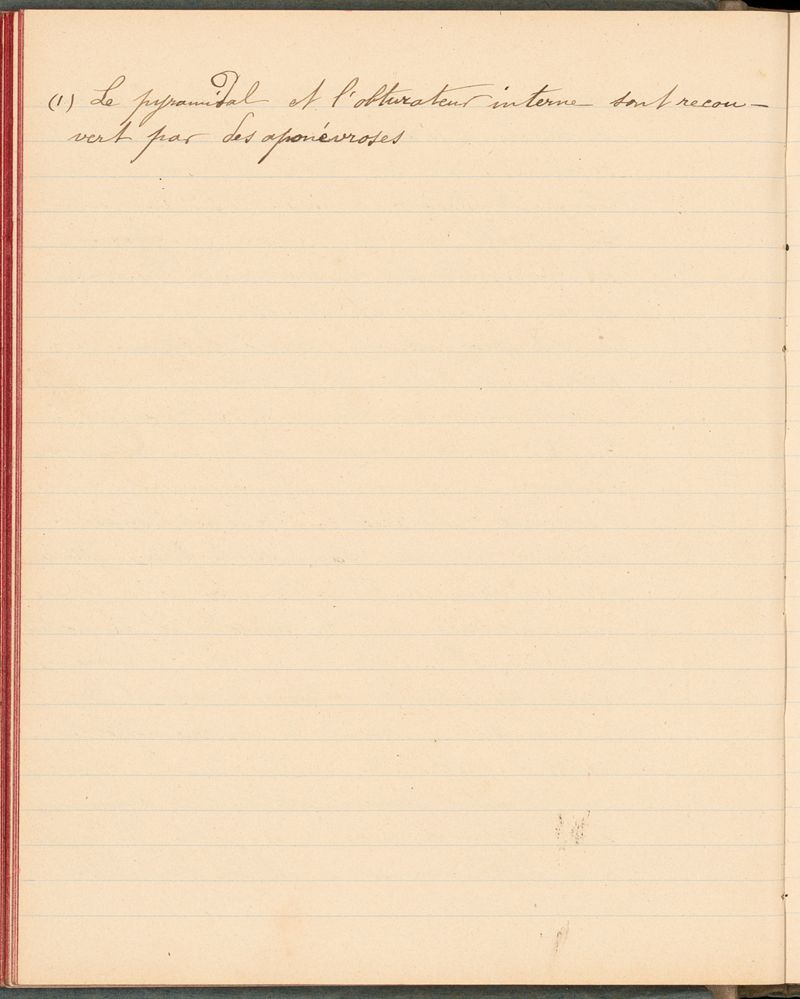 (1) Le pyramidal et l'obturateur interne sont recou-
vert par des aponévroses